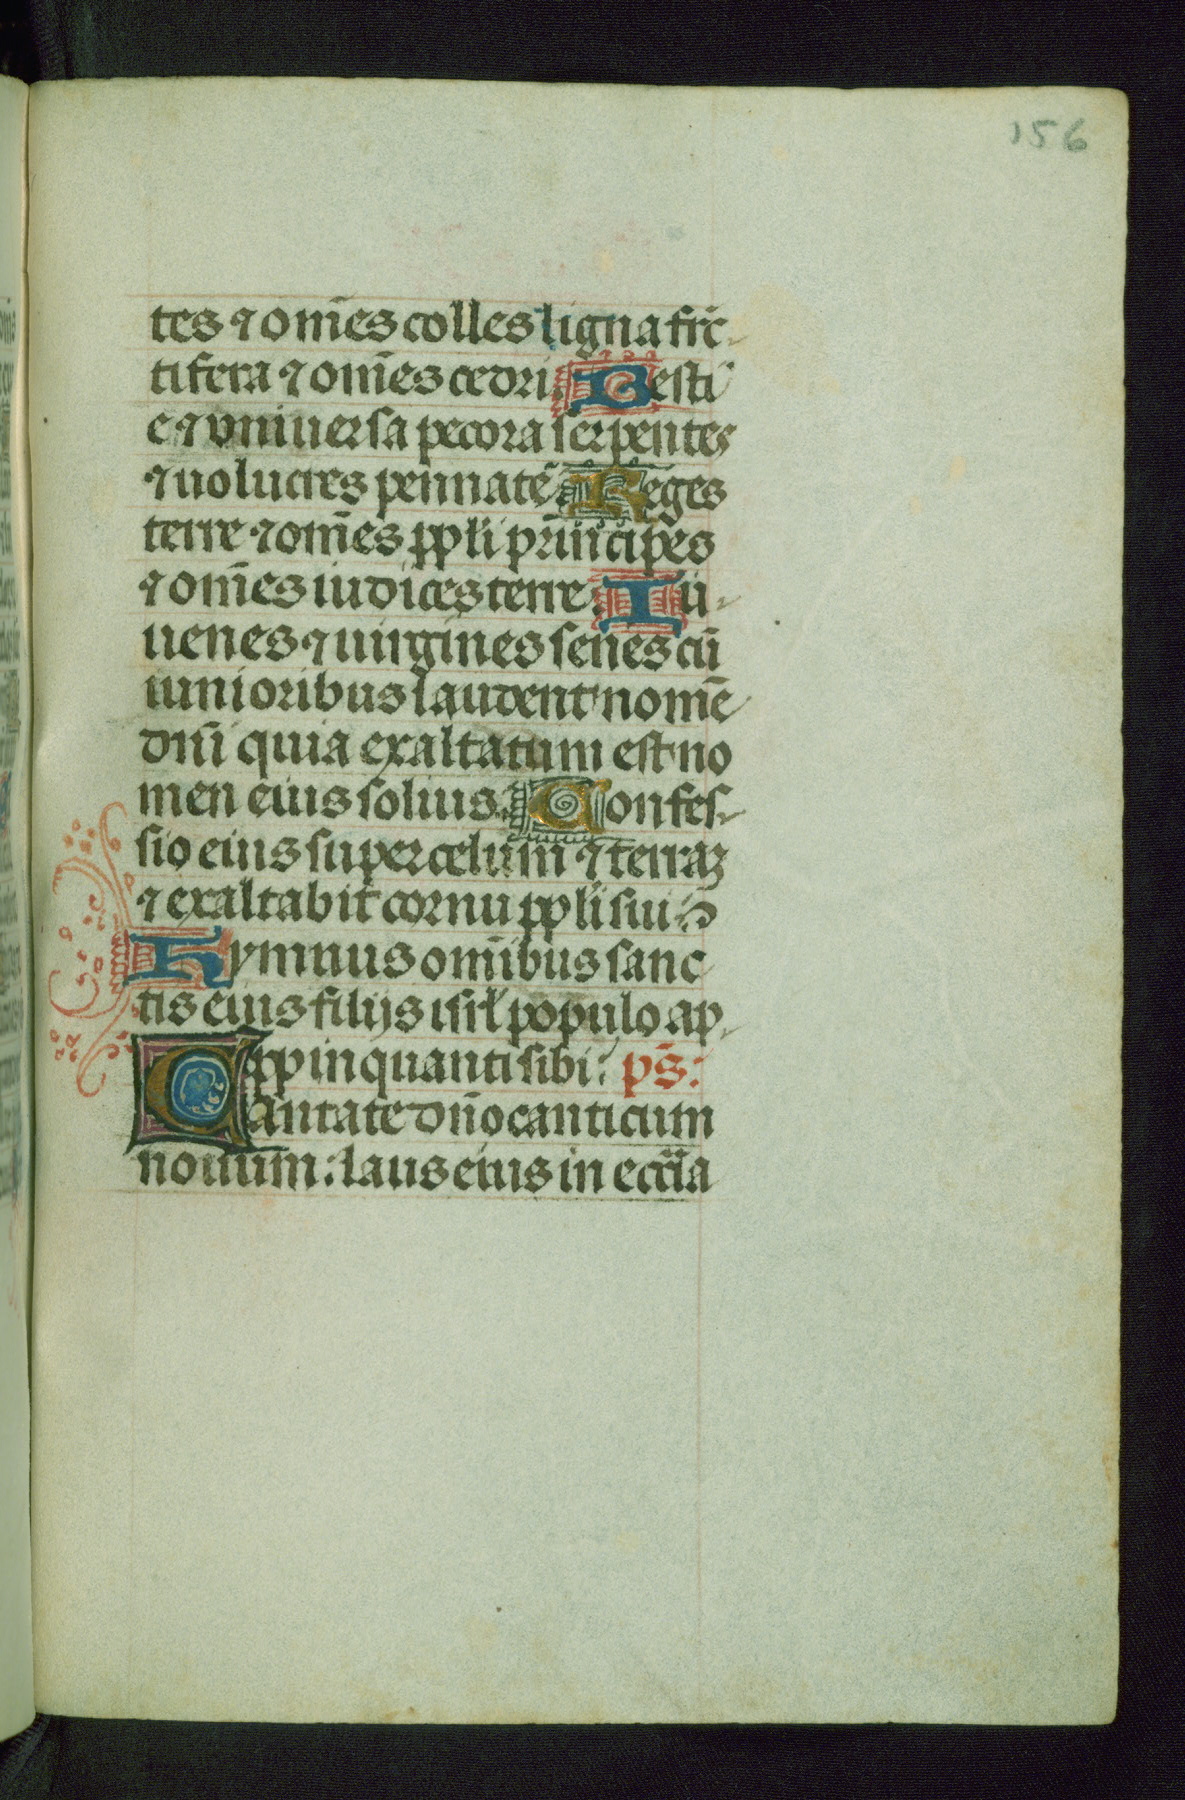 156
tes ⁊ om̄es colles ligna fruc-
tifera ⁊ om̄es cedri. Besti
e ⁊ vniuersa pecora serpentes
⁊ uolucres pennate. Reges
terre ⁊ om̄es ppl̄i prīncipes
⁊ om̄es iudices terre. Iu-
uenes ⁊ uirgines senes cū
iunioribus laudent nomē
dn̄i quia exaltatum est no
men eius solius. Confes-
sio eius super celum ⁊ terraꝫ
⁊ exaltabit cornu ppl̄i sui
Hymnus om̄ibus sanc
tis eius filijs isrl̄ populo ap-
ppinquanti sibi: ps̄:
Cantate dn̄o canticum
nouum: laus eius in eccl̄ia